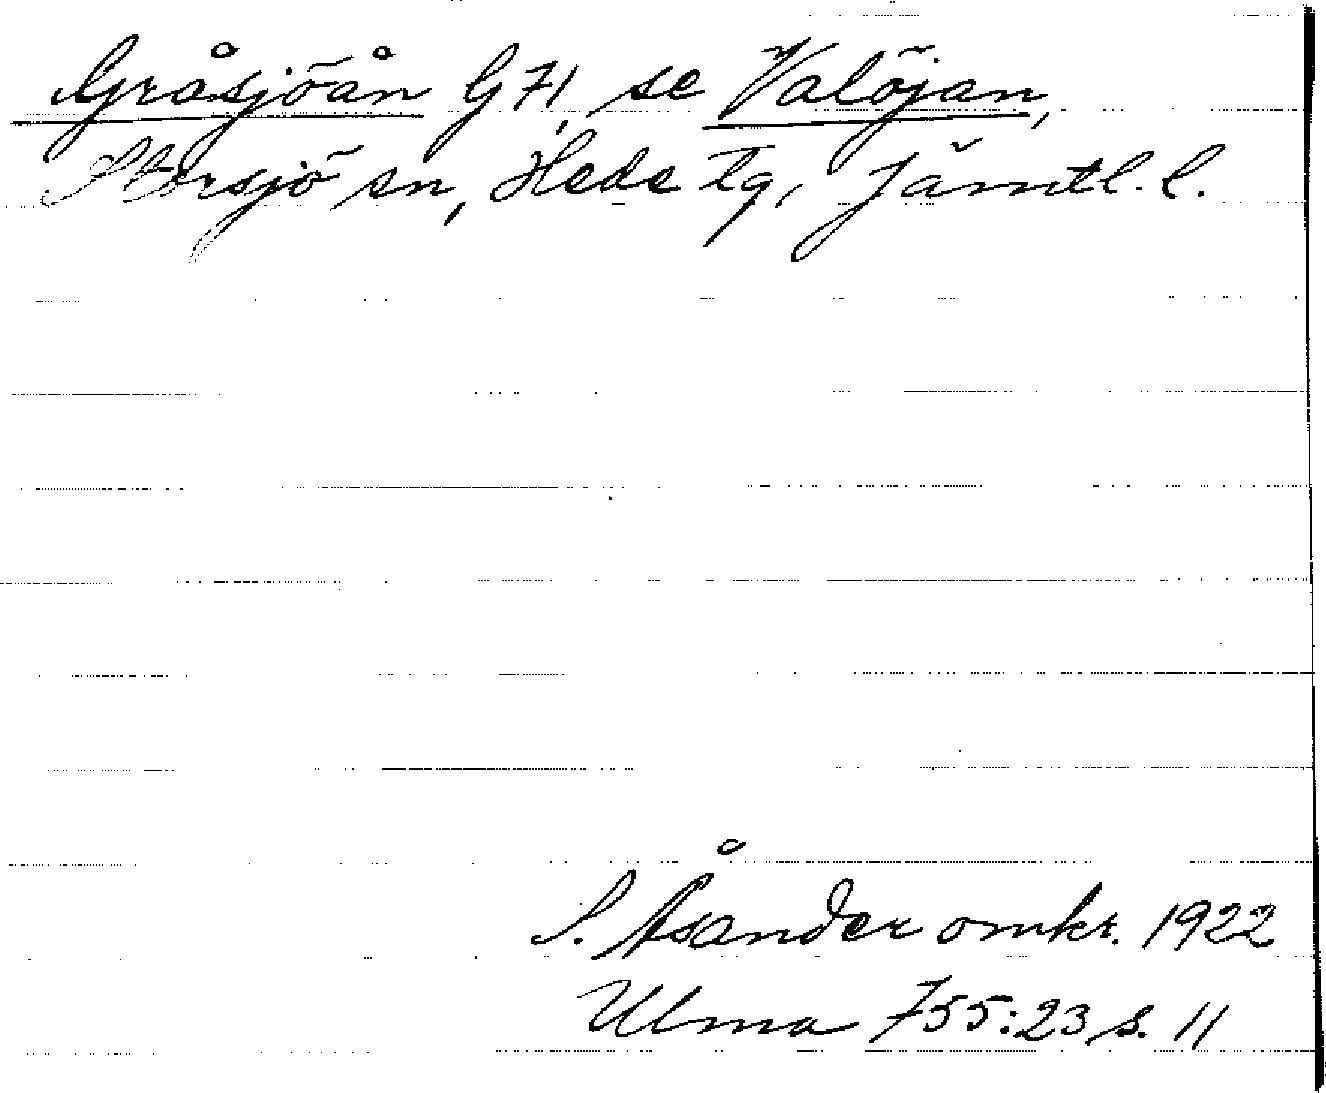 Gråsjöån G 71, se Valöjan,
Storsjö sn, Hede tg, Jämtl. l.
S. Åsander omkr. 1922
Ulma 755:23 s. 11